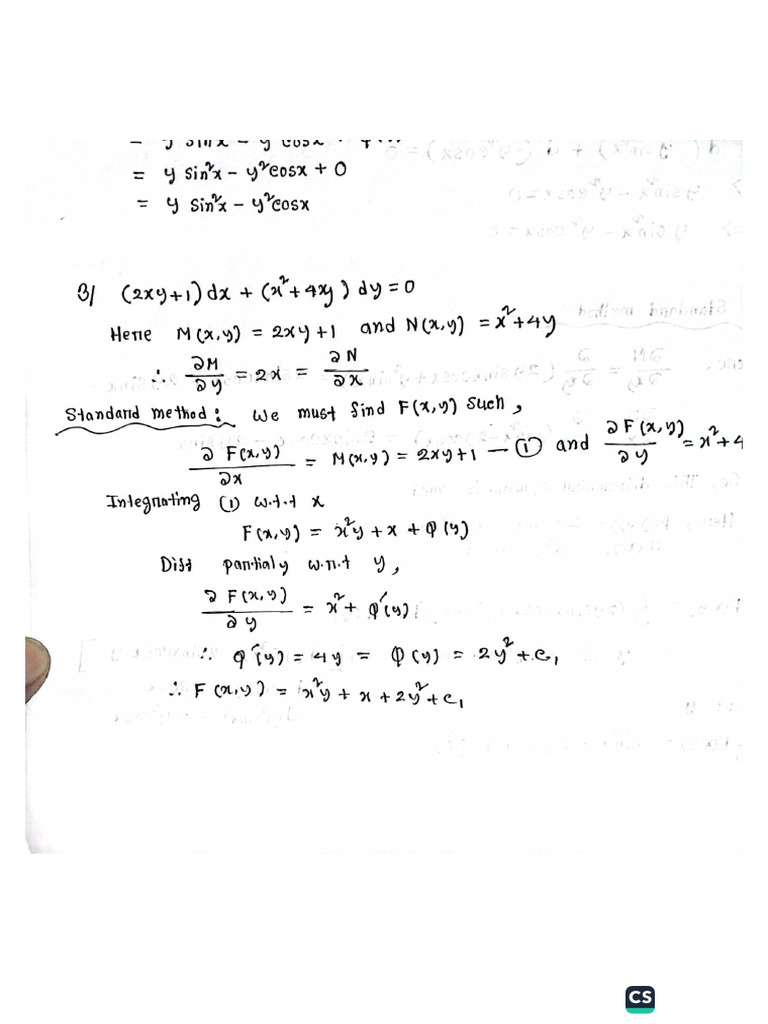 = y sin²x - y²cosx + 0
= y sin²x - y²cosx
3/ (2xy+1) dx + (x²+4xy) dy = 0
Here M(x,y) = 2xy+1 and N(x,y) = x²+4y
∴ ∂M/∂y = 2x = ∂N/∂x
Standard method: We must find F(x,y) such,
∂F(x,y)/∂x = M(x,y) = 2xy+1 — ① and ∂F(x,y)/∂y = x²+4
Integrating ① w.r.t x
F(x,y) = x²y + x + φ(y)
Diff partialy w.r.t y,
∂F(x,y)/∂y = x² + φ'(y)
∴ φ'(y) = 4y = φ(y) = 2y² + c₁
∴ F(x,y) = x²y + x + 2y² + c₁
CS